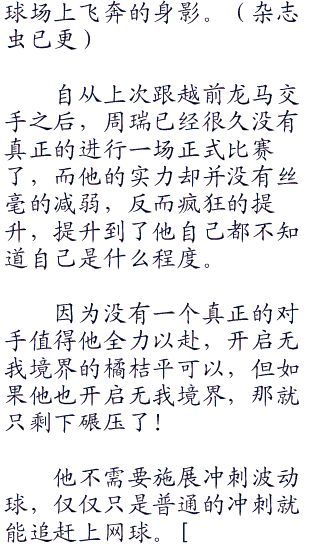 球场上飞奔的身影。（杂志
虫已更）
自从上次跟越前龙马交
手之后，周瑞已经很久没有
真正的进行一场正式比赛
了，而他的实力却并没有丝
毫的减弱，反而疯狂的提
升，提升到了他自己都不知
道自己是什么程度。
因为没有一个真正的对
手值得他全力以赴，开启无
我境界的橘桔平可以，但如
果他也开启无我境界，那就
只剩下碾压了！
他不需要施展冲刺波动
球，仅仅只是普通的冲刺就
能追赶上网球。[